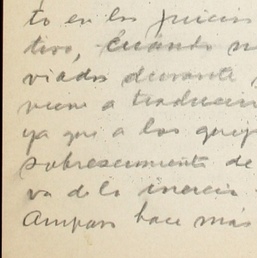 to en los juicios
tivo, cuando n
viados durante
viene a traducir
ya que a los quej
sobreseimiento de
va de la inercia
Amparo hace más